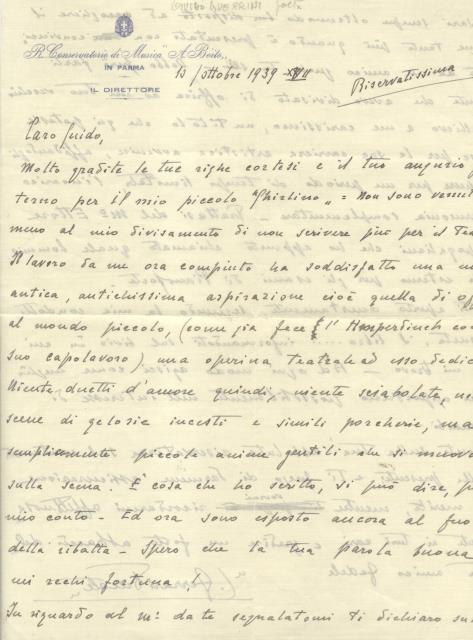 R. Conservatorio di Musica "A. Boito„
IN PARMA
IL DIRETTORE
10 Ottobre 1939 XVII
Riservatissima
Caro Guido,
Molto gradite le tue righe cortesi e il tuo augurio f
terno per il mio piccolo "Ghirlino„ = Non sono venuto
meno al mio divisamento di non scrivere più per il Tea
Il lavoro da me ora compiuto ha soddisfatto una m
antica, antichissima aspirazione cioè quella di of
al mondo piccolo, (come già fece l' Humperdinck co
suo capolavoro), una operina teatrale ad esso dedic
Niente duetti d'amore quindi, niente sciabolate, n
scene di gelosie incesti e simili porcherie, ma
semplicemente piccole anime gentili che si muovo
sulla scena. È cosa che ho scritto, si può dire, p
mio conto - Ed ora sono esposto ancora al fuo
della ribalta - Spero che la tua parola buona
mi rechi fortuna!
In riguardo al m° da te segnalatomi ti dichiaro su